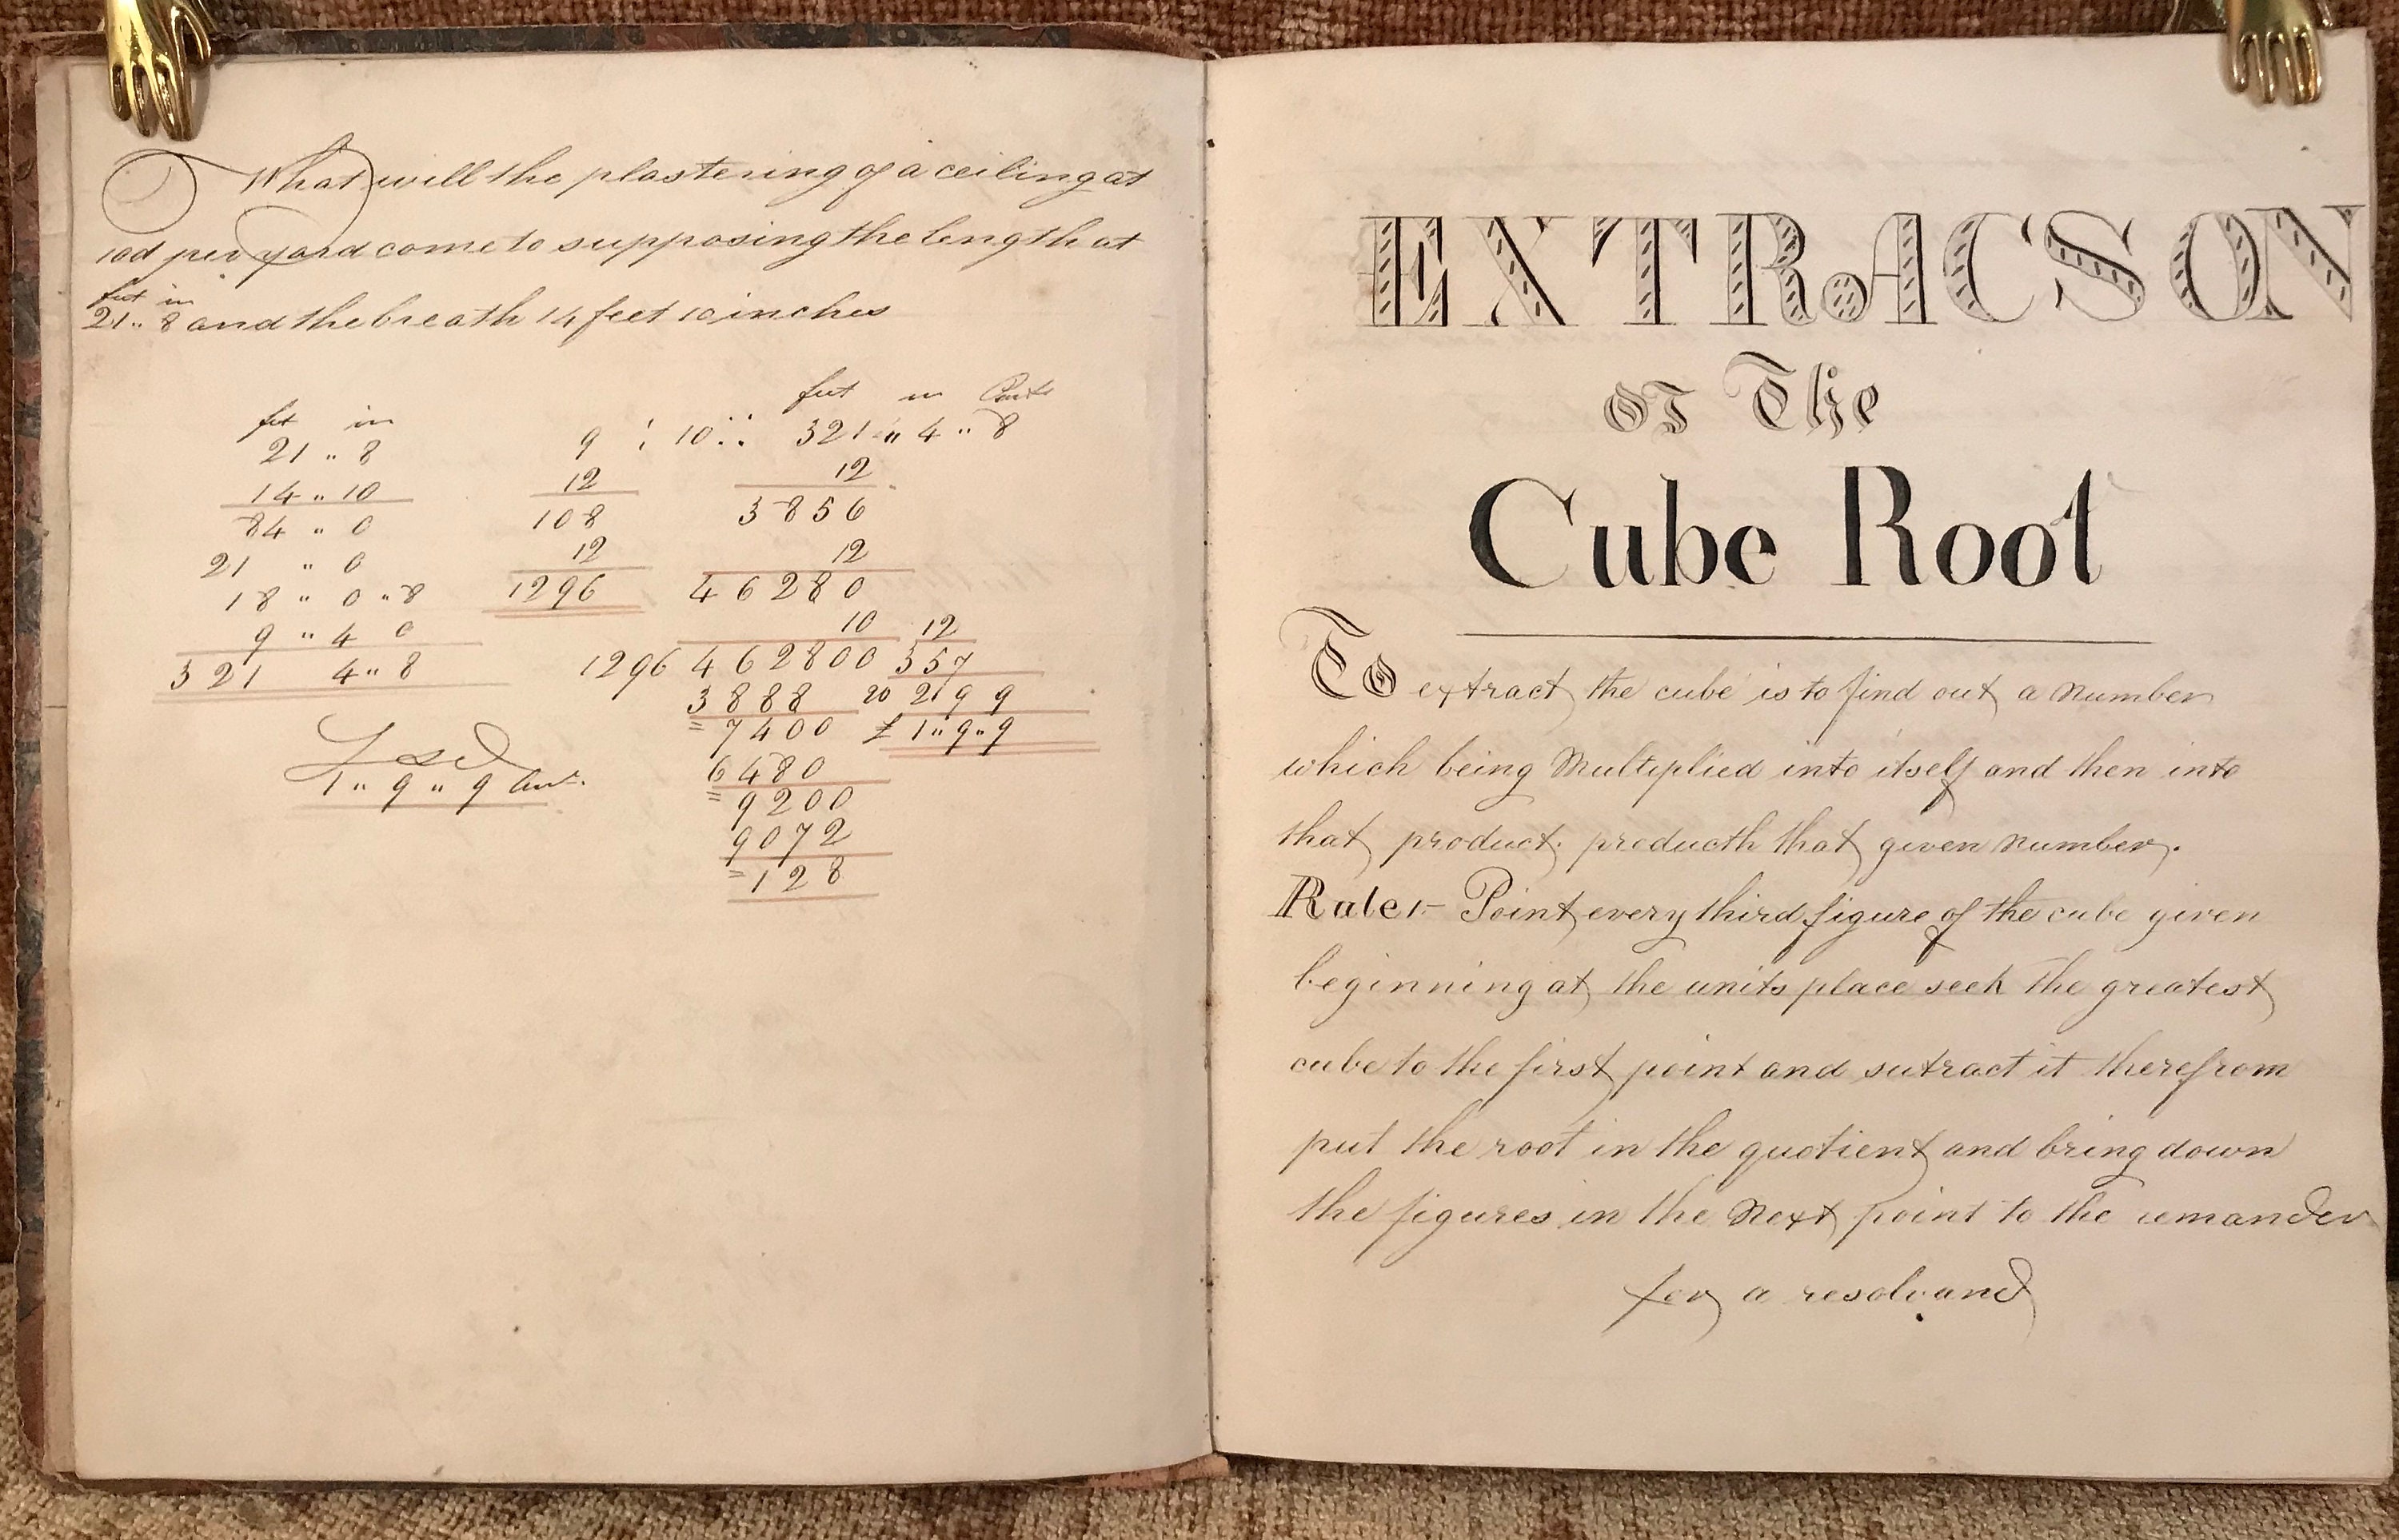 What will the plastering of a ceiling at
10d per yard come to supposing the length at
feet in
21 .. 8 and the breath 14 feet 10 inches
feet in
21 .. 8
14 .. 10
84 .. 0
21 .. 0
18 .. 0 .. 8
9 .. 4 0
321 4 .. 8
£ s d
1 .. 9 .. 9 Ans.
feet in Parts
9 : 10 :: 321 .. 4 .. 8
12
108
12
1296
12
3856
12
46280
10 12
1296 462800 357
3888 20 29 9
= 7400 £ 1 .. 9 .. 9
6480
= 9200
9072
= 128
EXTRACSON
OF The
Cube Root
To extract the cube is to find out a number
which being Multiplied into itself and then into
that product. producth that given number.
Rule:- Point every third figure of the cube given
beginning at the units place seek the greatest
cube to the first point and sutract it therefrom
put the root in the quotient and bring down
the figures in the Next point to the remander
for a resolvand